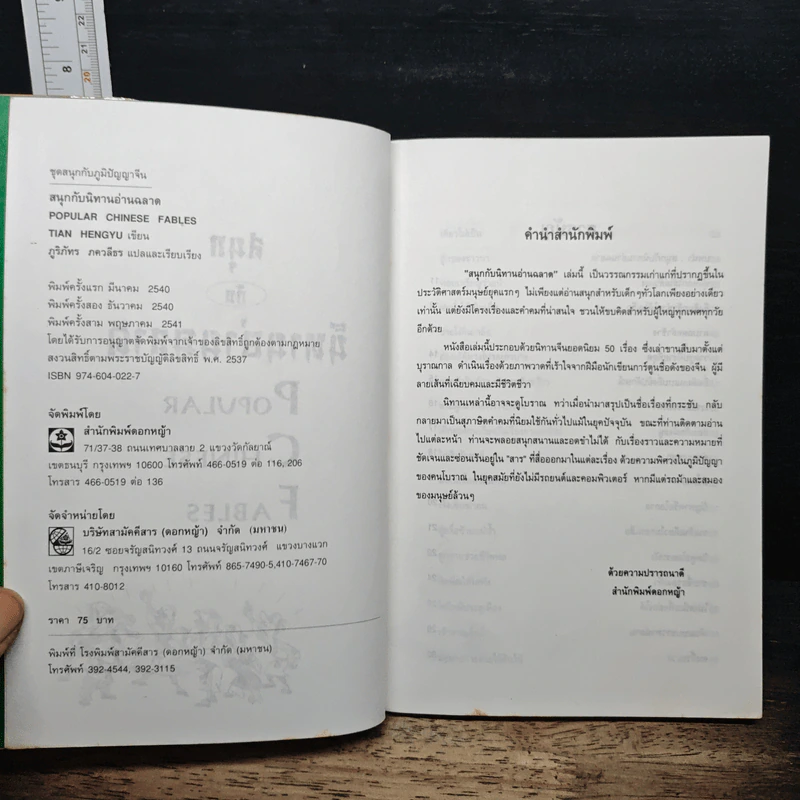 ชุดสนุกกับภูมิปัญญาจีน
สนุกกับนิทานอ่านฉลาด
POPULAR CHINESE FABLES
TIAN HENGYU เขียน
ภูริภัทร ภควลีธร แปลและเรียบเรียง
พิมพ์ครั้งแรก มีนาคม 2540
พิมพ์ครั้งสอง ธันวาคม 2540
พิมพ์ครั้งสาม พฤษภาคม 2541
โดยได้รับการอนุญาตจัดพิมพ์จากเจ้าของลิขสิทธิ์ ถูกต้องตามกฎหมาย
สงวนสิทธิ์ตามพระราชบัญญัติลิขสิทธิ์ พ.ศ. 2537
ISBN 974-604-022-7
จัดพิมพ์โดย
สำนักพิมพ์ดอกหญ้า
71/37-38 ถนนเทศบาลสาย 2 แขวงวัดกัลยาณ์
เขตธนบุรี กรุงเทพฯ 10600 โทรศัพท์ 466-0519 ต่อ 116, 206
โทรสาร 466-0519 ต่อ 136
จัดจำหน่ายโดย
บริษัทสามัคคีสาร (ดอกหญ้า) จำกัด (มหาชน)
16/2 ซอยจรัญสนิทวงศ์ 13 ถนนจรัญสนิทวงศ์ แขวงบางแวก
เขตภาษีเจริญ กรุงเทพฯ 10160 โทรศัพท์ 865-7490-5,410-7467-70
โทรสาร 410-8012
ราคา 75 บาท
พิมพ์ที่ โรงพิมพ์สามัคคีสาร (ดอกหญ้า) จำกัด (มหาชน)
โทรศัพท์ 392-4544, 392-3115
คำนำสำนักพิมพ์
"สนุกกับนิทานอ่านฉลาด" เล่มนี้ เป็นวรรณกรรมเก่าแก่ที่ปรากฏขึ้นใน
ประวัติศาสตร์มนุษย์ยุคแรกๆ ไม่เพียงแต่อ่านสนุกสำหรับเด็กๆทั่วโลกเพียงอย่างเดียว
เท่านั้น แต่ยังมีโครงเรื่องและคำคมที่น่าสนใจ ชวนให้ขบคิดสำหรับผู้ใหญ่ทุกเพศทุกวัย
อีกด้วย
หนังสือเล่มนี้ประกอบด้วยนิทานจีนยอดนิยม 50 เรื่อง ซึ่งเล่าขานสืบมาตั้งแต่
บุราณกาล ดำเนินเรื่องด้วยภาพวาดที่เร้าใจจากฝีมือนักเขียนการ์ตูนชื่อดังของจีน ผู้มี
ลายเส้นที่เฉียบคมและมีชีวิตชีวา
นิทานเหล่านี้อาจจะดูโบราณ ทว่าเมื่อนำมาสรุปเป็นชื่อเรื่องที่กระชับ กลับ
กลายมาเป็นสุภาษิตคำคมที่นิยมใช้กันทั่วไปแม้ในยุคปัจจุบัน ขณะที่ท่านติดตามอ่าน
ไปแต่ละหน้า ท่านจะพลอยสนุกสนานและอดขำไม่ได้ กับเรื่องราวและความหมายที่
ชัดเจนและซ่อนเร้นอยู่ใน "สาร" ที่สื่อออกมาในแต่ละเรื่อง ด้วยความพิศวงในภูมิปัญญา
ของคนโบราณ ในยุคสมัยที่ยังไม่มีรถยนต์และคอมพิวเตอร์ หากมีแต่รถม้าและสมอง
ของมนุษย์ล้วนๆ
ด้วยความปรารถนาดี
สำนักพิมพ์ดอกหญ้า